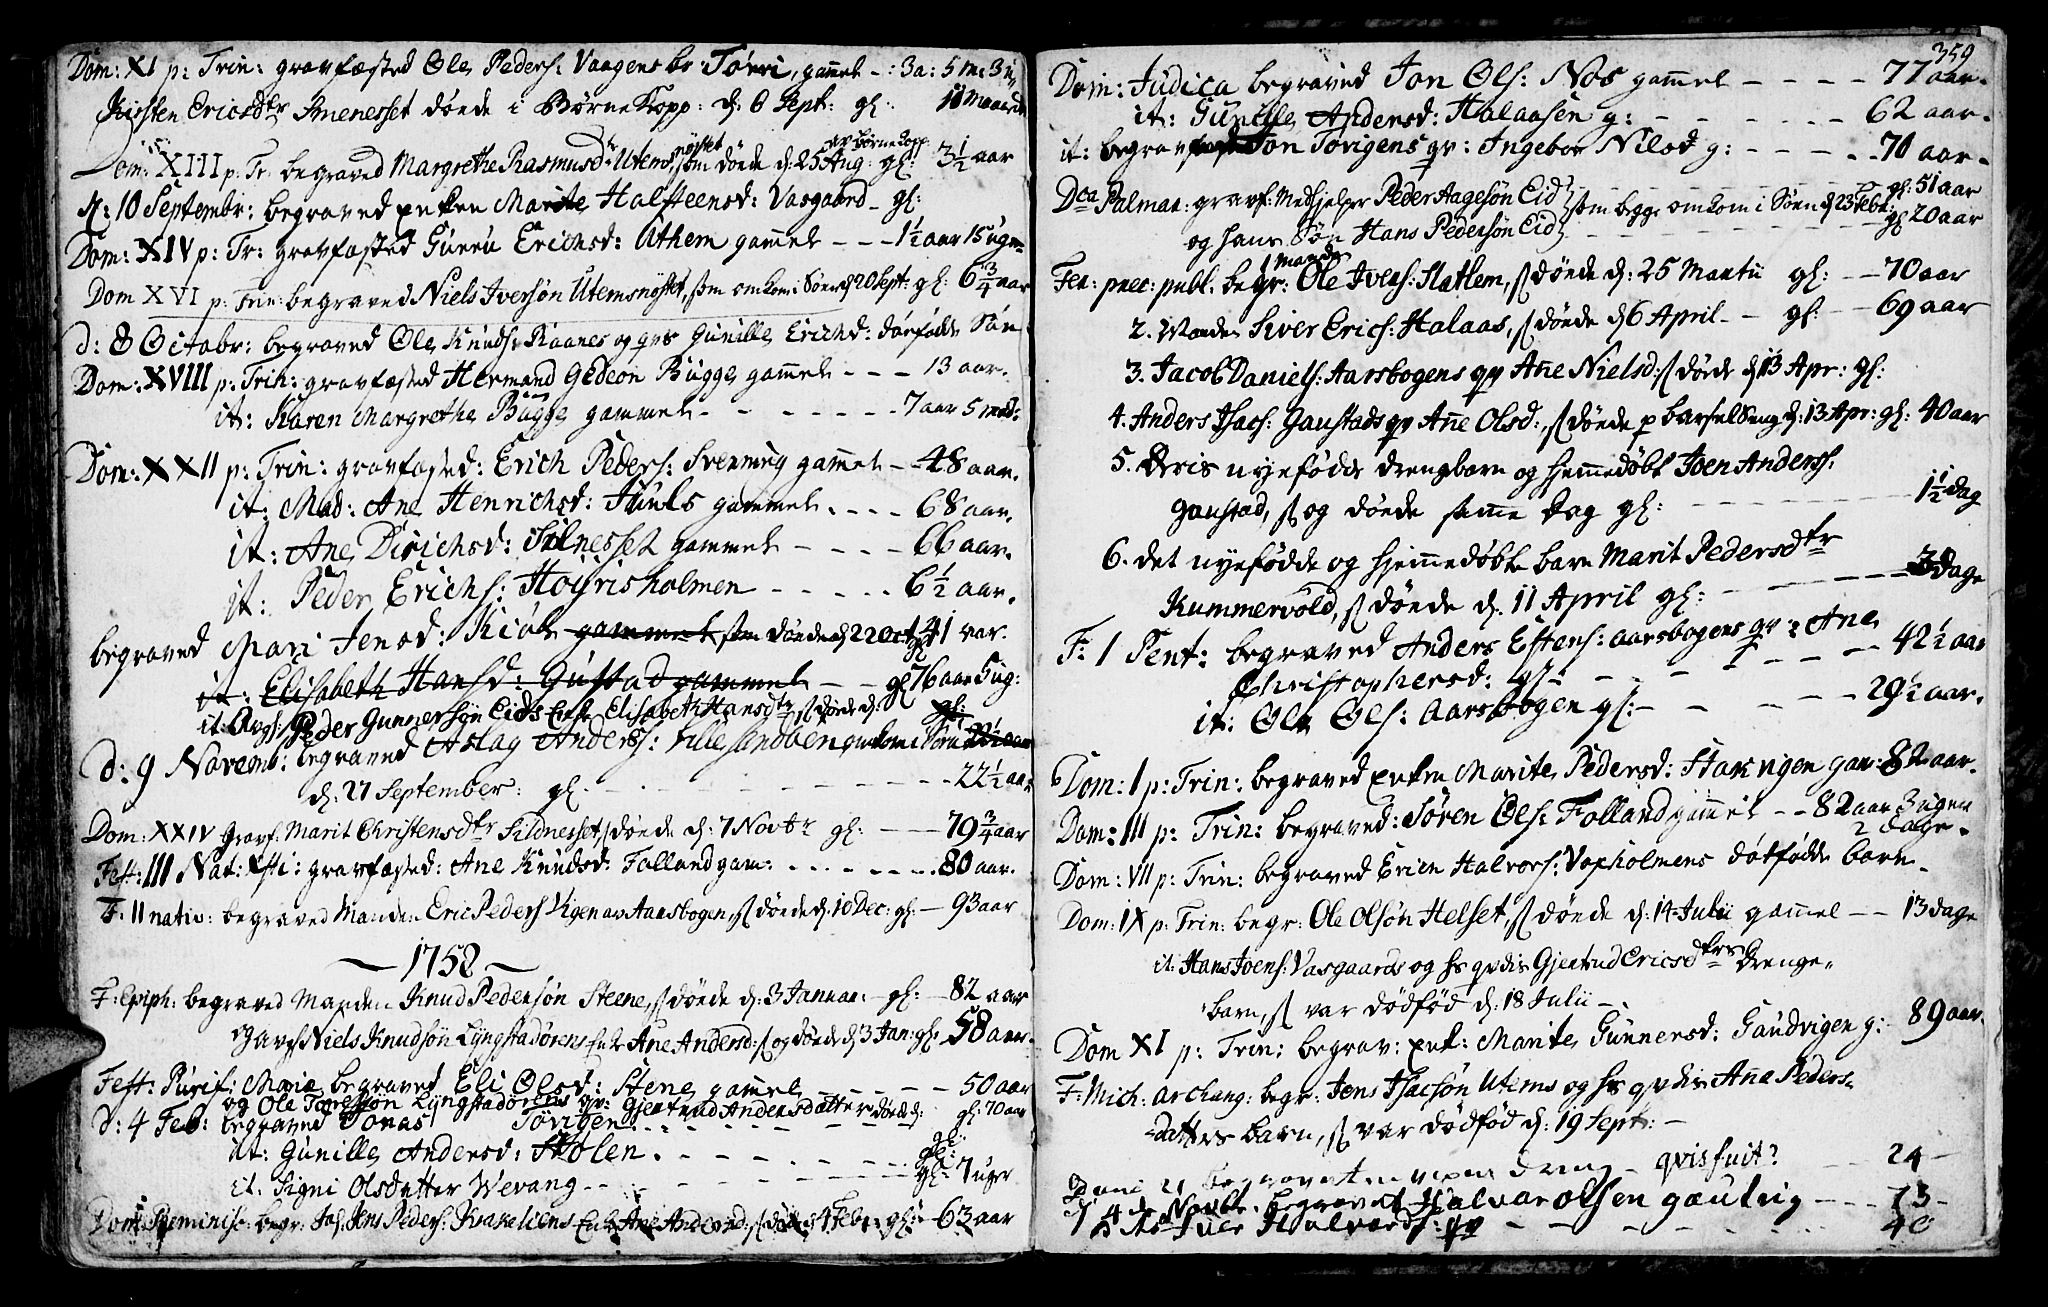 Dom: XI p: Trin: gravfæsted Ole Peders: Vaagens br Tørri, gammel -: 3 a: 5 m: 3
Kirsten Ericsdtr Smenesset døede i Børne Kopp: d: 6 Sept: gl: 11 maaned
Dom: XIII p: Tr: begraved Margrethe Rasmusdr Utemsnøstet som døede d: 25 Aug: av børnekopp gl: 3 1/2 aar
d: 10 Septembr: begraved enken Marite Halsteensd: Vasgaard gl:
Dom: XIV p: Tr: gravfæsted Guru Erichsd: Uthem gammel - - - 1 1/2 aar 15 uger
Dom XVI p: Trin: begraved Niels Iversøn Utemsnøstet, som omkom i Søen d 20 Sept: gl: 6 3/4 aar
d: 8 Octobr: begraved Ole Knuds: Raanes og qvs Gunille Erichsd: dødfødde Søn
Dom: XVIII p: Trin: gravfæsted Hermand Gedeon Bugge gammel - - - 13 aar.
it: Karen Margrethe Bugge gammel - - - 7 aar 5 mnd:
Dom: XXII p: Trin: gravfæsted: Erich Peders: Svenning gammel - 48 aar.
it: Mad: Ane Henrichsd: Junks gammel - - - 68 aar.
it: Ane Dirichsd: Silnesset gammel - - - 66 aar.
it: Peder Erichs: Høijrisholmen - - - 6 1/2 aar.
begraved Mari Jensd: Kiøl gammel som døede d 22 Oct gl 41 aar.
it: Elisabeth Hansd: Gustad gammel - - gl 76 aar 5 ug:
it: Avgl: Peder Gunnersøn Eids Enke Elisabeth Hansdtr, døede d: gl:
d: 9 Novemb: begraved Aslag Anders: Lillesandøen omkom i Søen 22 1/2 aar
d: 27 September: gl: - - - 22 1/2 aar
Dom: XXIV Gravf: Marit Christensdtr Sildnesset, døede d: 7 Novbr gl: - 79 3/4 aar
Fest: III Nat: Xsti: gravfæsted: Ane Knudsd: Folland gam: - - - 80 aar.
F. II nativ: begraved Manden Eric Peders: Vigen av Aarsbogen, døede d: 10 Dec: gl: - 93 aar
1752
F: Epiph: begraved Manden Knud Pedersøn Steene, døede d: 3 Januar: gl: 82 aar
og avgl Niels Knudsøn Lyngstadørens Enke Ane Andersd: og døede d 3 Jan: gl: 58 aar.
Fest: Purif: Mariæ begraved Eli Olsd: Stene gammel - - - 50 aar
og Ole Toresøn Lyngstadørens qv: Gjertrud Andersdatter døede d: gl: 70 aar
d: 4 Feb: begraved Jonas Tørrigen
it: Gunille Andersd: Holen. - - - gl:
it. Signi Olsdatter Wevang - - - gl: 7 uger
Dom: Reminisc: begr: Jens Peders: Kvakeliens Enke Ane Andersd: døede d 4 Febr: gl: - 63 aar
359
Dom: Judica begraved Jon Ols: Nos gammel - - - 77 aar.
it: Gunille Andersd: Halaasen g: - - - 62 aar.
it: begraved Jon Torigens qv: Ingebor Nilsd g: - - - 70 aar.
Dca Palmar: gravf: Medhjelper Peder Aagesøn Eid - - - gl: 51 aar
og hans Søn Hans Pedersøn Eid som begge omkom i Søen d 23 Febr: gl 20 aar
Fer: prec: publ: begr: 1 Manden Ole Ivers: Slatlem, døede d: 25 Martii gl: - - 70 aar
2. Manden Siver Erics: Halaas, døede d 6 April - - gl: - - 69 aar
3. Jacob Daniels: Aarsbogens qv Ane Nielsd: døede d 13 Apr: gl:
4. Anders Isacs: Gaustads qv Ane Olsd:, døede p barselseng d: 13 Apr: gl: 40 aar
5. dris nyefødde drengbarn og hjemmedøbt Joen Anderss:
Gaustad, og døede samme dag gl: - - - 1 1/2 dag
6. det nyefødde og hjemmedøbte barn Marit Pedersdtr
Kummervold, døede d. 11 April gl: - - - 3 dage
F: 1 Pent: begraved Anders Estens: Aarsbogens qv: Ane
Christophersd: gl: - - - 42 1/2 aar
it: Ole Ols: Aarsbogen gl: - - - 29 1/2 aar.
Dom: 1 p: Trin: begraved enken Marite Pedersd: Starvigen gam: 82 aar.
Dom: III p: Trin: begraved: Søren Ols: Folland gammel - - 82 aar 3 uger
2 dage.
Dom: VII p: Trin: begraved Erich Halvors: Vogholmens dødfødde barn
Dom: IX p: Trin: begr: Ole Olsøn Helset, døede d: 14 Julii gammel - - 13 dage
it: Hans Joens: Vasgaards og hs qvdis Gjertrud Ericsdtrs Drenge-
barn, var dødfød d: 18 Julii -
Dom XI p: Trin: begrav: enk: Marite Gunnersd: Sandvigen g: 89 aar.
F: Mich: Archang: begr: Jens Isacsøn Utems og hs qvdis Ane Peders-
datters barn, var dødfød d: 19 Sept: -
begravet en dreng - qvis fuit? - 24 -
d 4 de Novbr. begravet Halvor Olsen gautvig - - - 73 -
Halvords: qv - - - 40